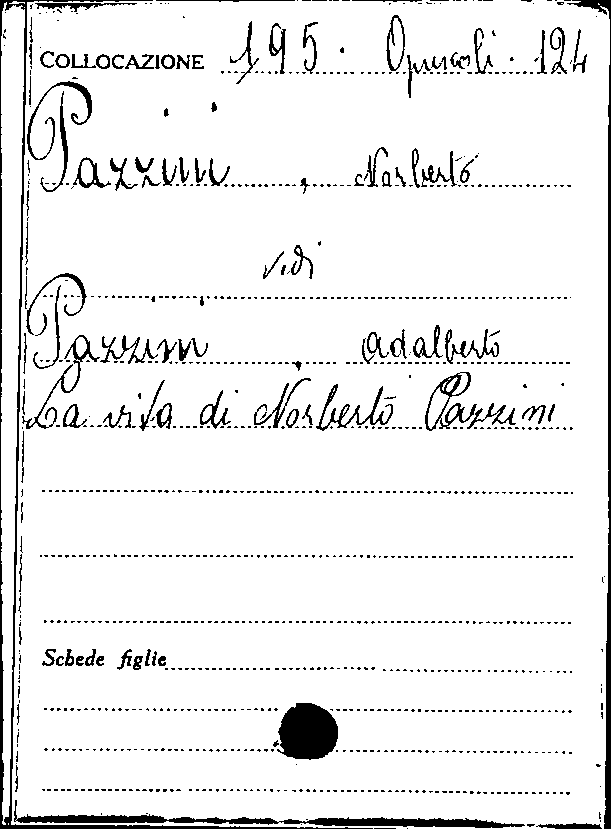 COLLOCAZIONE 195. Opuscoli. 124
Pazzini, Norberto
vidi
Pazzini, Adalberto
La vita di Norberto Pazzini
Schede figlie